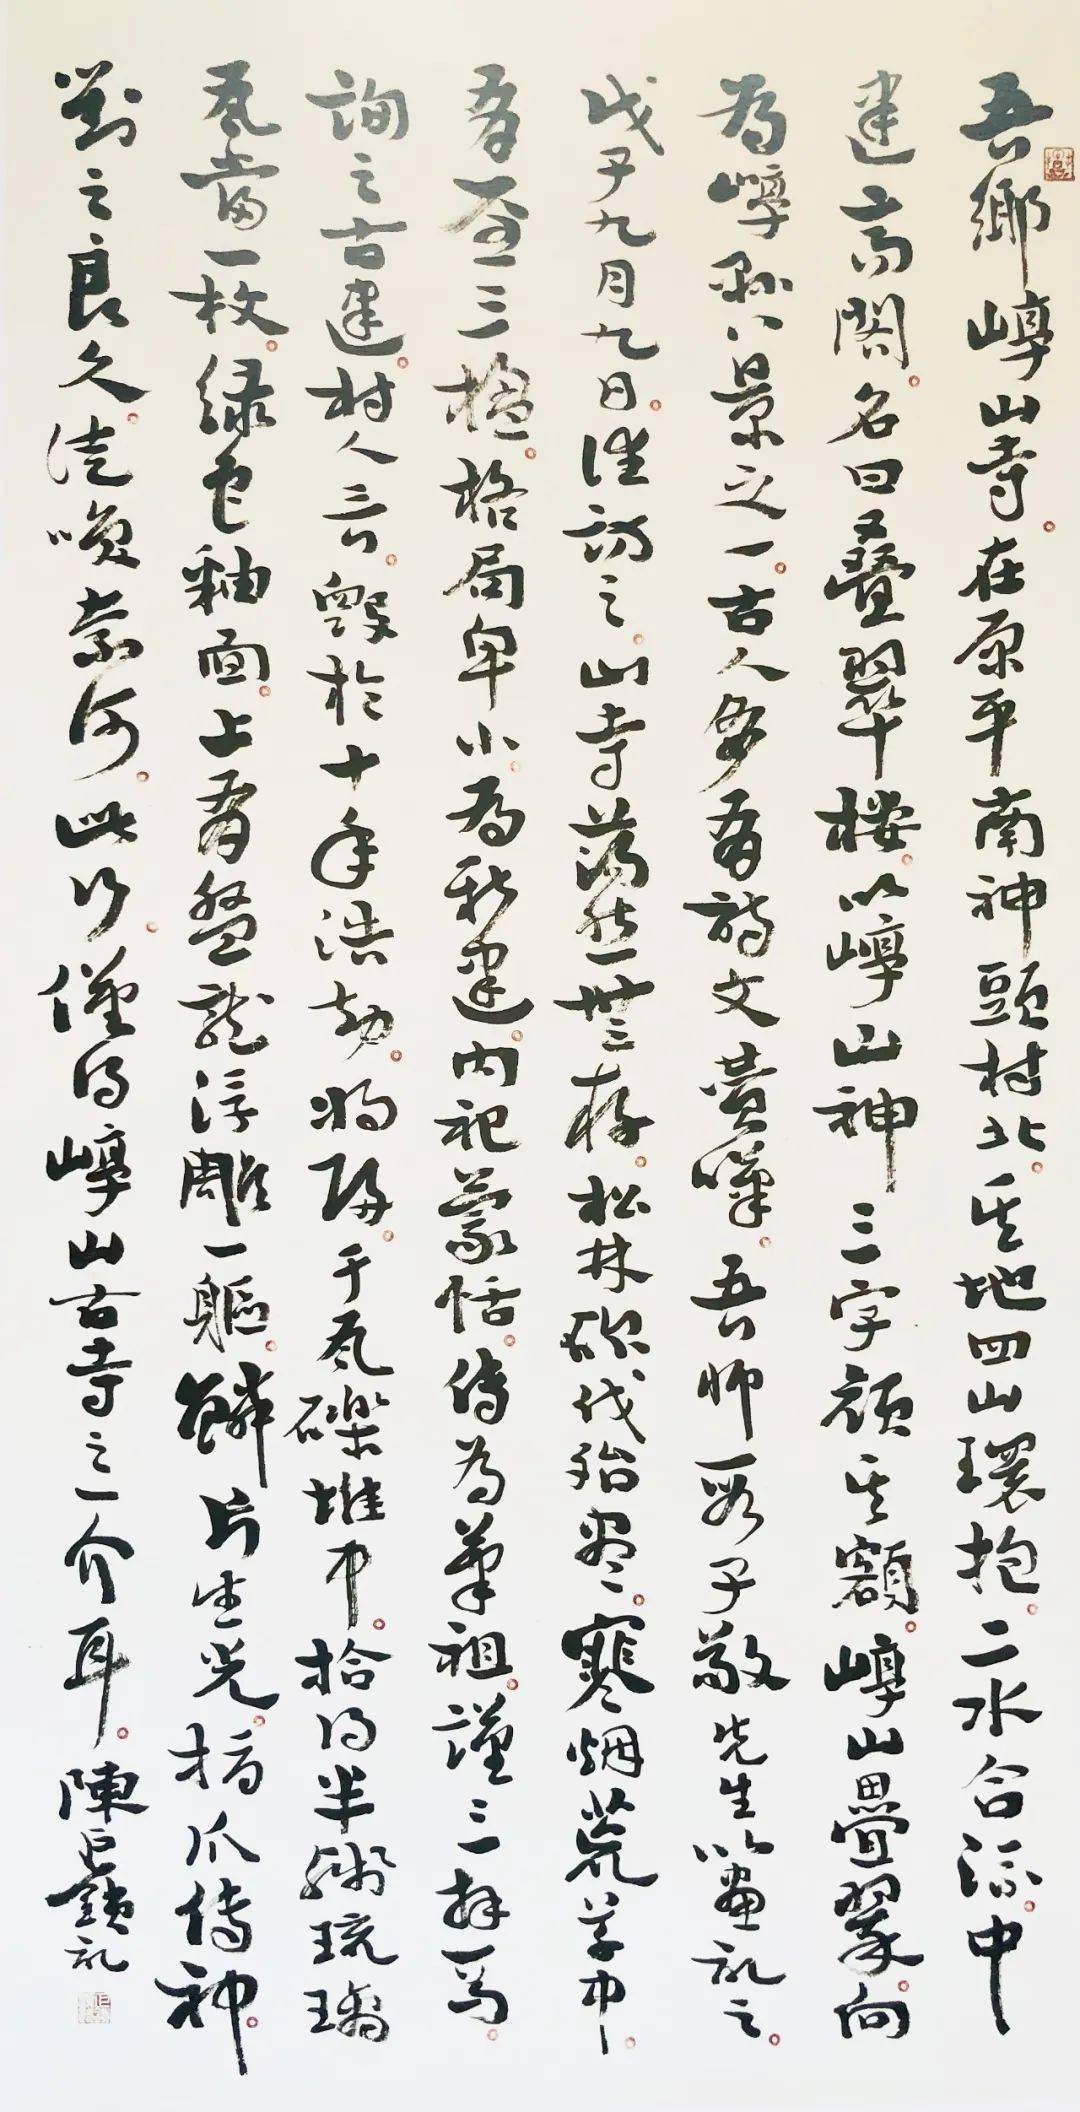 吾鄉崞山寺在原平南神頭村北其地四山環抱二水合流中
建高閣名曰叠翠楼以崞山神三字顏其額崞山疊翠向
為崞縣八景之一古人多有詩文黃嘩吾師殷子敬先生以畫記之
戊子九月九日往訪之山寺蕩然無存松林砍伐殆盡寒烟荒草中
有屋三楹格局卑小為新建内祀蒙恬傳為筆祖謹三拜焉
詢之古建村人言毀於十年浩劫將歸于瓦礫堆中拾得半殘琉璃
瓦當一枚綠色釉面上有盤龍浮雕一軀鱗片生光指爪傳神
對之良久徒喚奈何此行僅得崞山古寺之一介耳陳巨鎖記